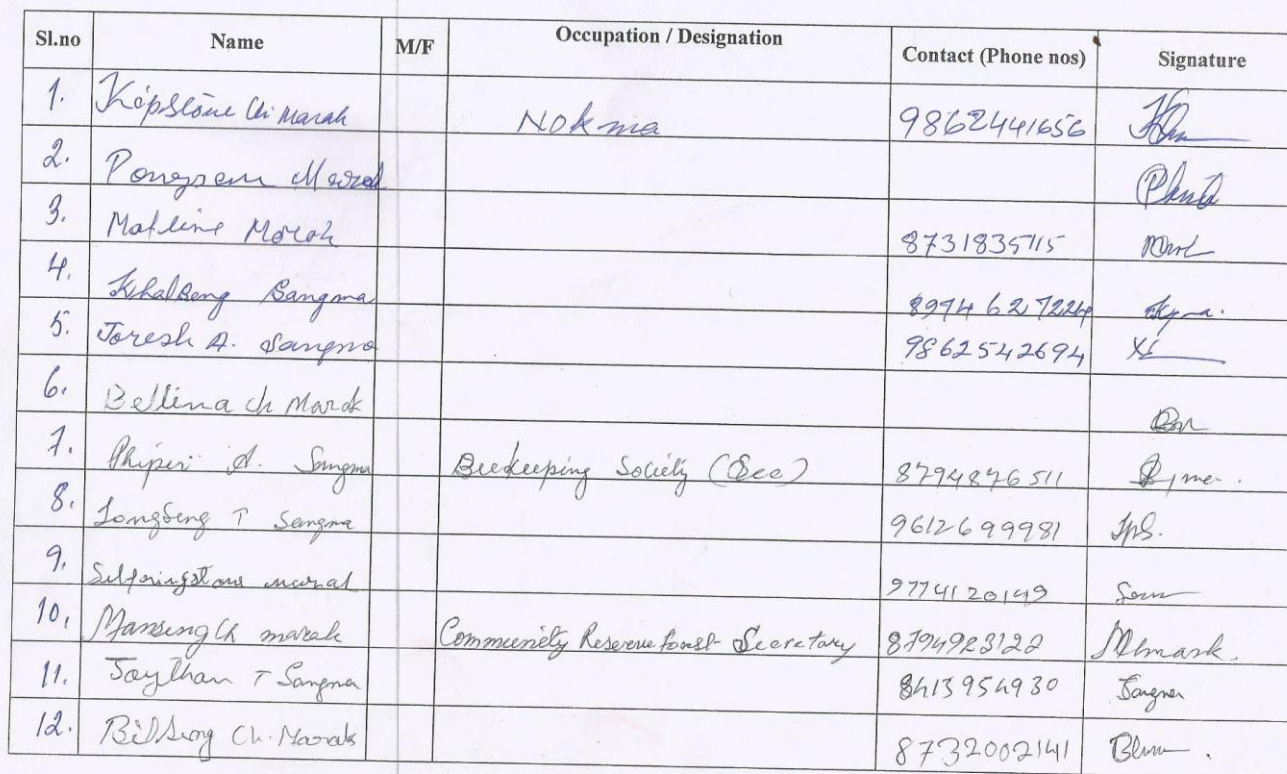 Sl.no Name M/F Occupation / Designation Contact (Phone nos) Signature
1. Kepstone Ch Marak Nokma 9862441656
2. Pongsen Marak
3. Matline Marak 8731835115
4. Khalseng Sangma 8974627224
5. Joresh A. Sangma 9862542694
6. Bellina ch Marak
7. A. Sangma Beekeeping Society (Sec) 8794876511
8. Longseng T Sangma 9612699981
9. marak 9774120149
10, Mansing Ch marak Community Reserve forest Secretary 8794923122
11. Jaythan T Sangma 8413954930 Sangma
12. Bilseng Ch. Marak 8732002141